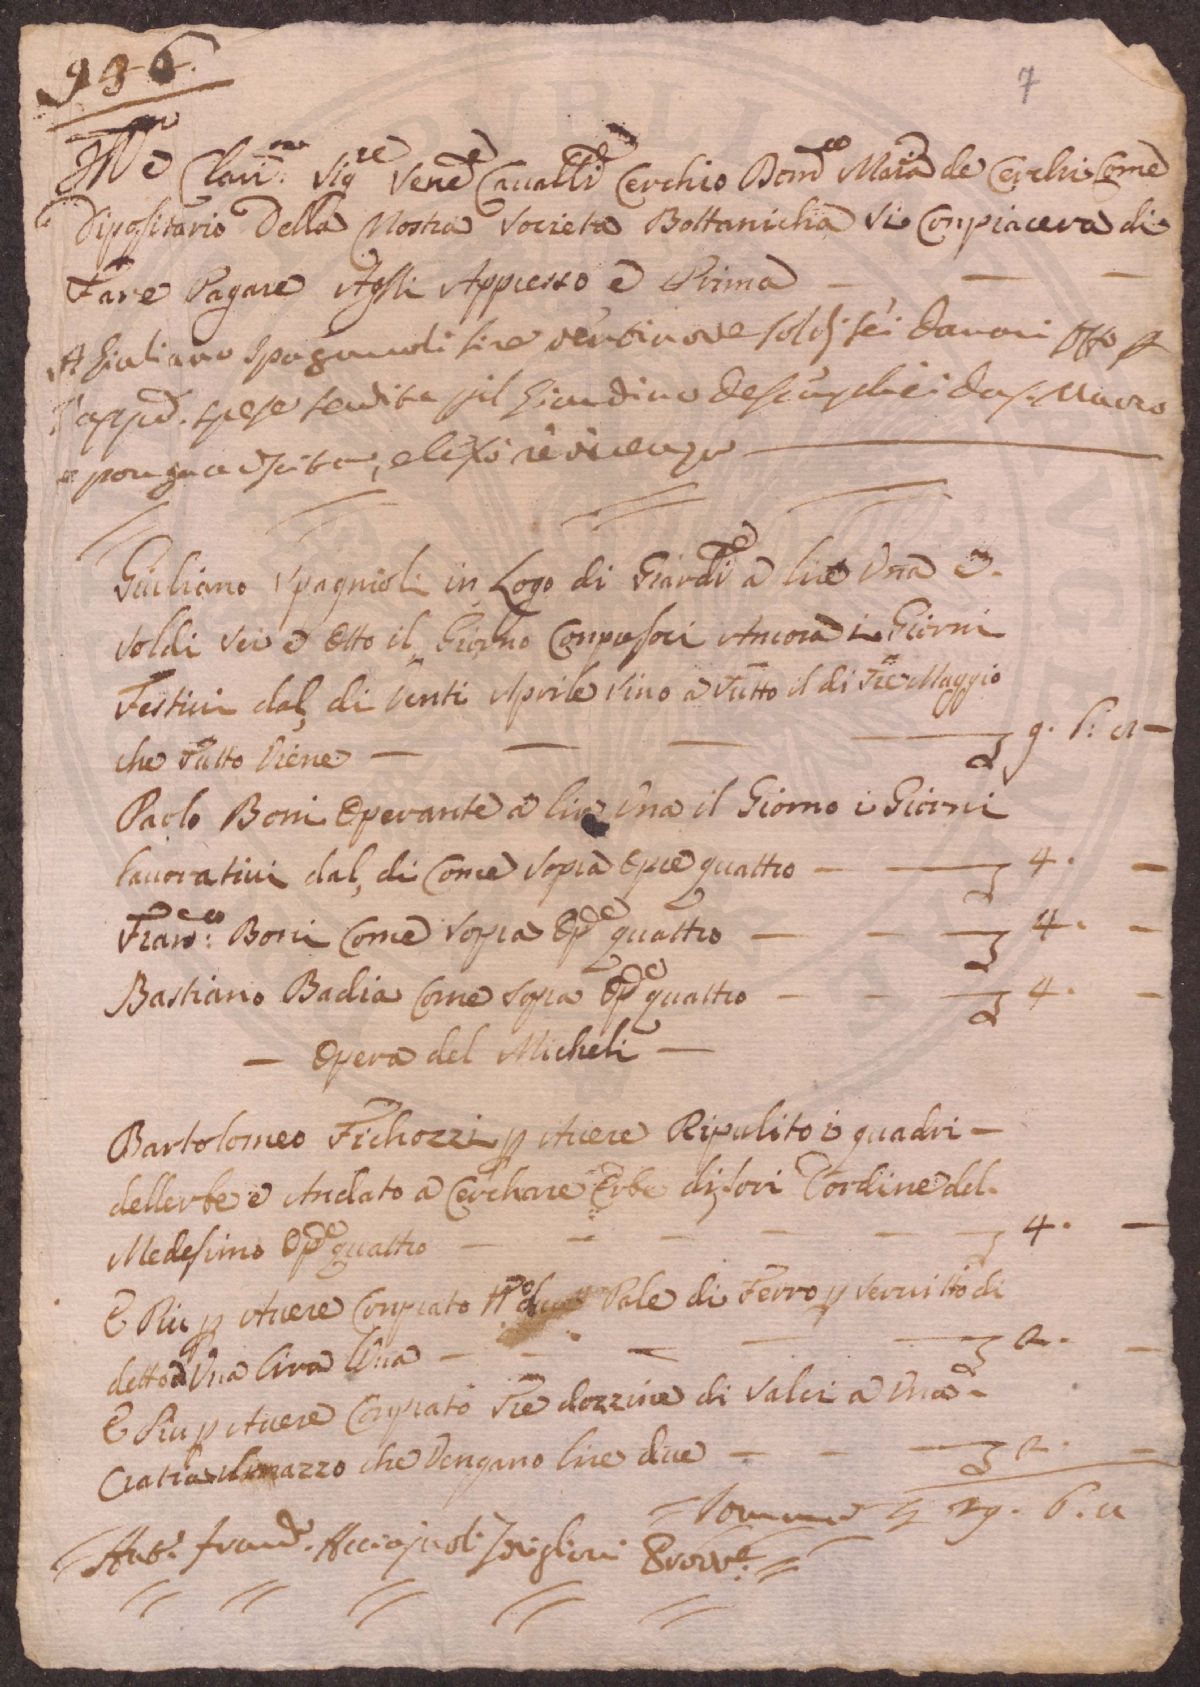 936.
7
Ill.mo e Clariss.mo Sig.re Sene Cavall.e Cerchio Dom.co Maria de Cerchi Come
Dipositario Della Nostra Societa Bottanicha si Conpiacera di
Fare Pagare Agli Appresso e Prima —
A Giuliano Spagnuoli lire ventinove soldi sei danari otto p
l'app.e spese il Giardino
e ponga a uscita,
Giuliano Spagnioli in Logo di Giard.e a lire Una e
soldi sei e Otto il Giorno Conpresoci Ancora i Giorni
Festivi dal di Venti Aprile Sino a tutto il di Tre Maggio
che Tutto Viene — 9. 6. 8 —
Paolo Boni Operante a lire Una il Giorno i Giorni
lavorativi dal di Come Sopra Opre quattro — 4. —
Franc.co Boni Come Sopra Op.e quattro — 4. —
Bastiano Badia Come Sopra Op.e quattro — 4. —
— Opera del Micheli —
Bartolomeo Fichozzi p Avere Ripulito i quadri —
dellerbe e Andato a Cerchare Erbe di fori d'ordine del
Medesimo Op.e quattro — 4. —
E Piu p Avere Conprato Pale di Ferro p Servitio di
detto a Una lira luna — 2. —
E Piu p Avere Conprato Tre dozzine di Salci a Una
Cratia il mazzo che Vengano lire due — 2. —
Somma 29. 6. 8
Ant.o Fran.co Acciajuoli Provv.e